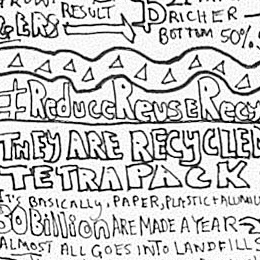 RESULT
GERS
RICHER
BOTTOM 50%
#ReduceReuseRecy
THEY ARE RECYCLED
TETRAPACK
IT'S BASICALLY, PAPER, PLASTIC + ALUMINU
30 Billion ARE MADE A YEAR
ALMOST ALL GOES INTO LANDFILLS